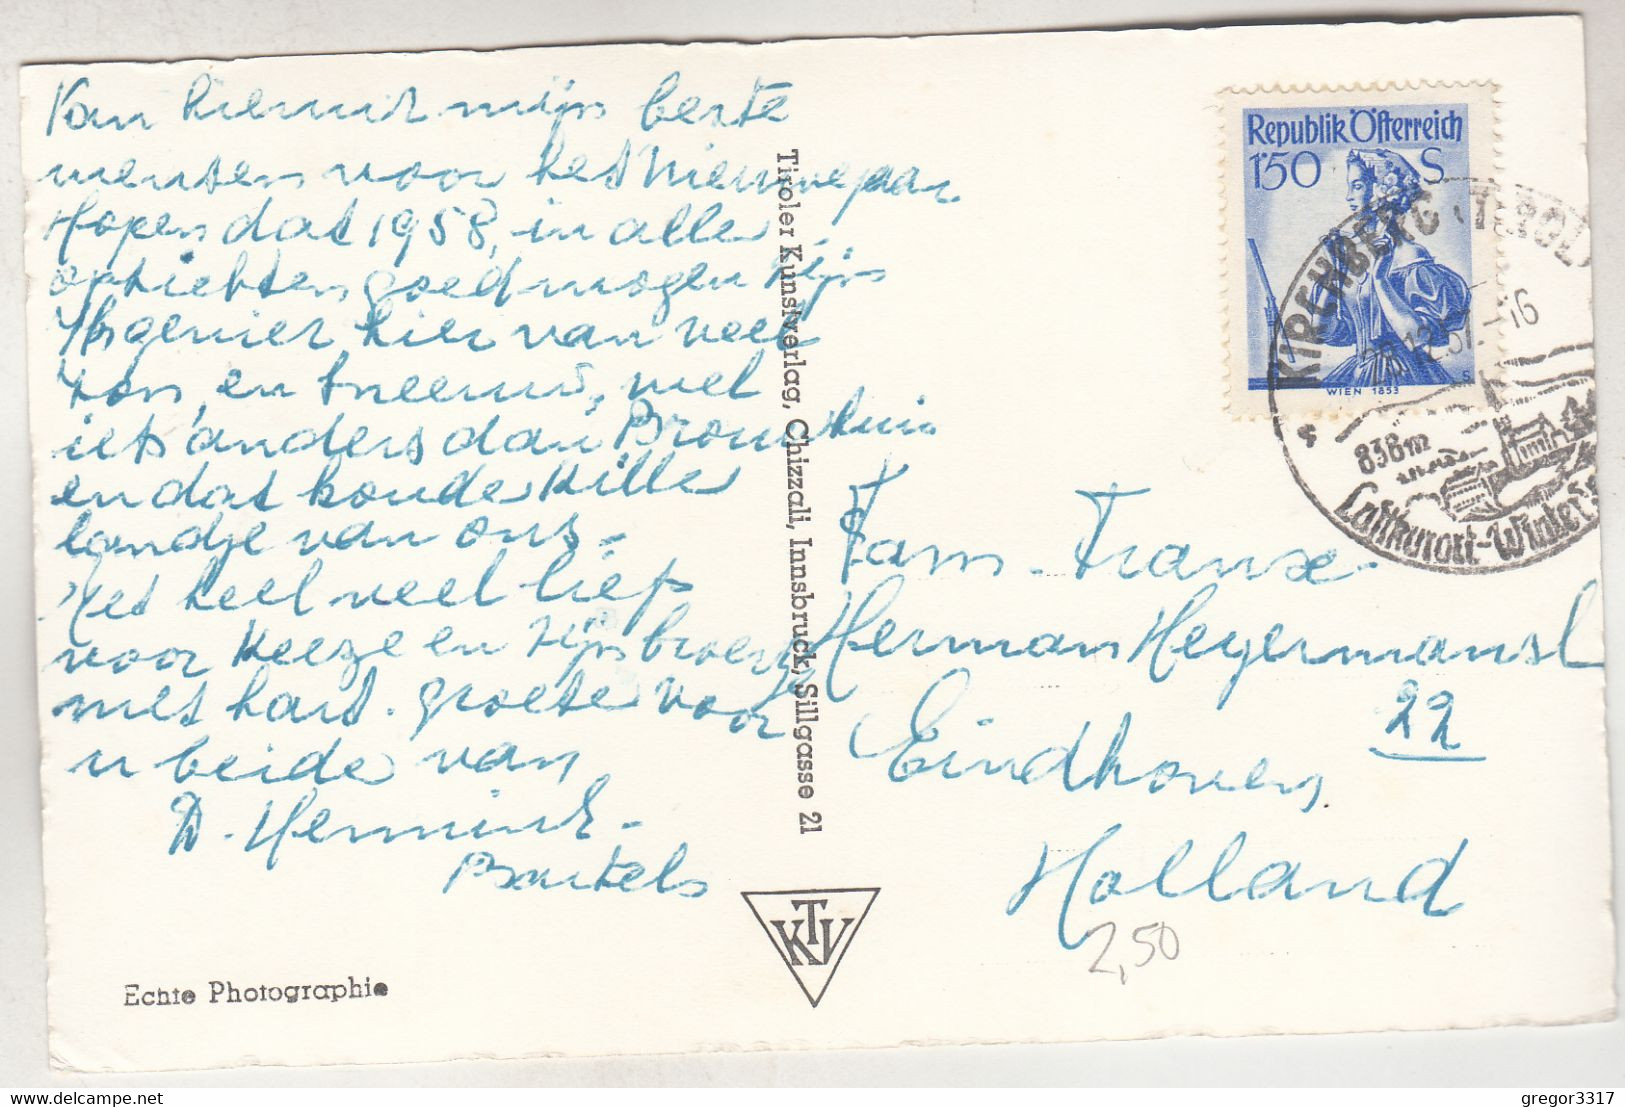 Van hieruit mijn beste
wensen voor het Nieuwe jaar
Hopen dat 1958, in alle
opzichten goed mogen zijn
geniet hier van veel
zon, en sneeuw, wel
iets anders dan
en dat koude kille
landje van ons.
Met heel veel liefs
voor Keesje en zijn broertje
met hart. groeten voor
u beide van
D. Hermine.
Bartels
Echte Photographie
Tiroler Kunstverlag, Chizzali, Innsbruck, Sillgasse 21
KTV
Republik Österreich
1'50 S
WIEN 1853
KIRCHBERG, TIROL
28.12.57.-16
836m
Luftkurort-Winter
Fam. Franse.
Herman Heyermansl
22
Eindhoven.
Holland
2,50
gregor3317